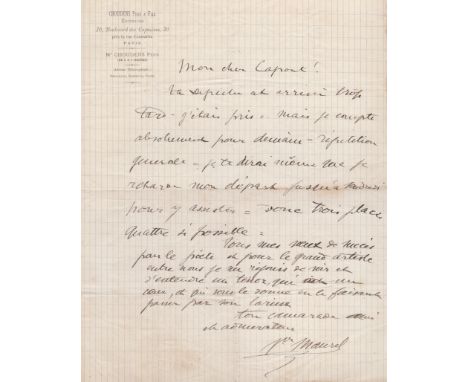 CHOUDENS Père & Fils
30, Boulevard des Capucines, 30
PARIS
Mon cher Capoul!
Ta dépêche est arrivée trop
tard - j'étais pris = mais je compte
absolument pour demain - répétition
générale - je te dirai même que je
retarde mon départ jusqu'à
pour y assister = donc trois places
quattre si possible =
Tous mes vœux de succès
pour le poète et pour le grand artiste
entre nous je me réjouis de voir et
d'entendre un ténor, qui a un
cœur, et qui sous le
par son larinx
ton camarade ami
et admirateur
Maurel